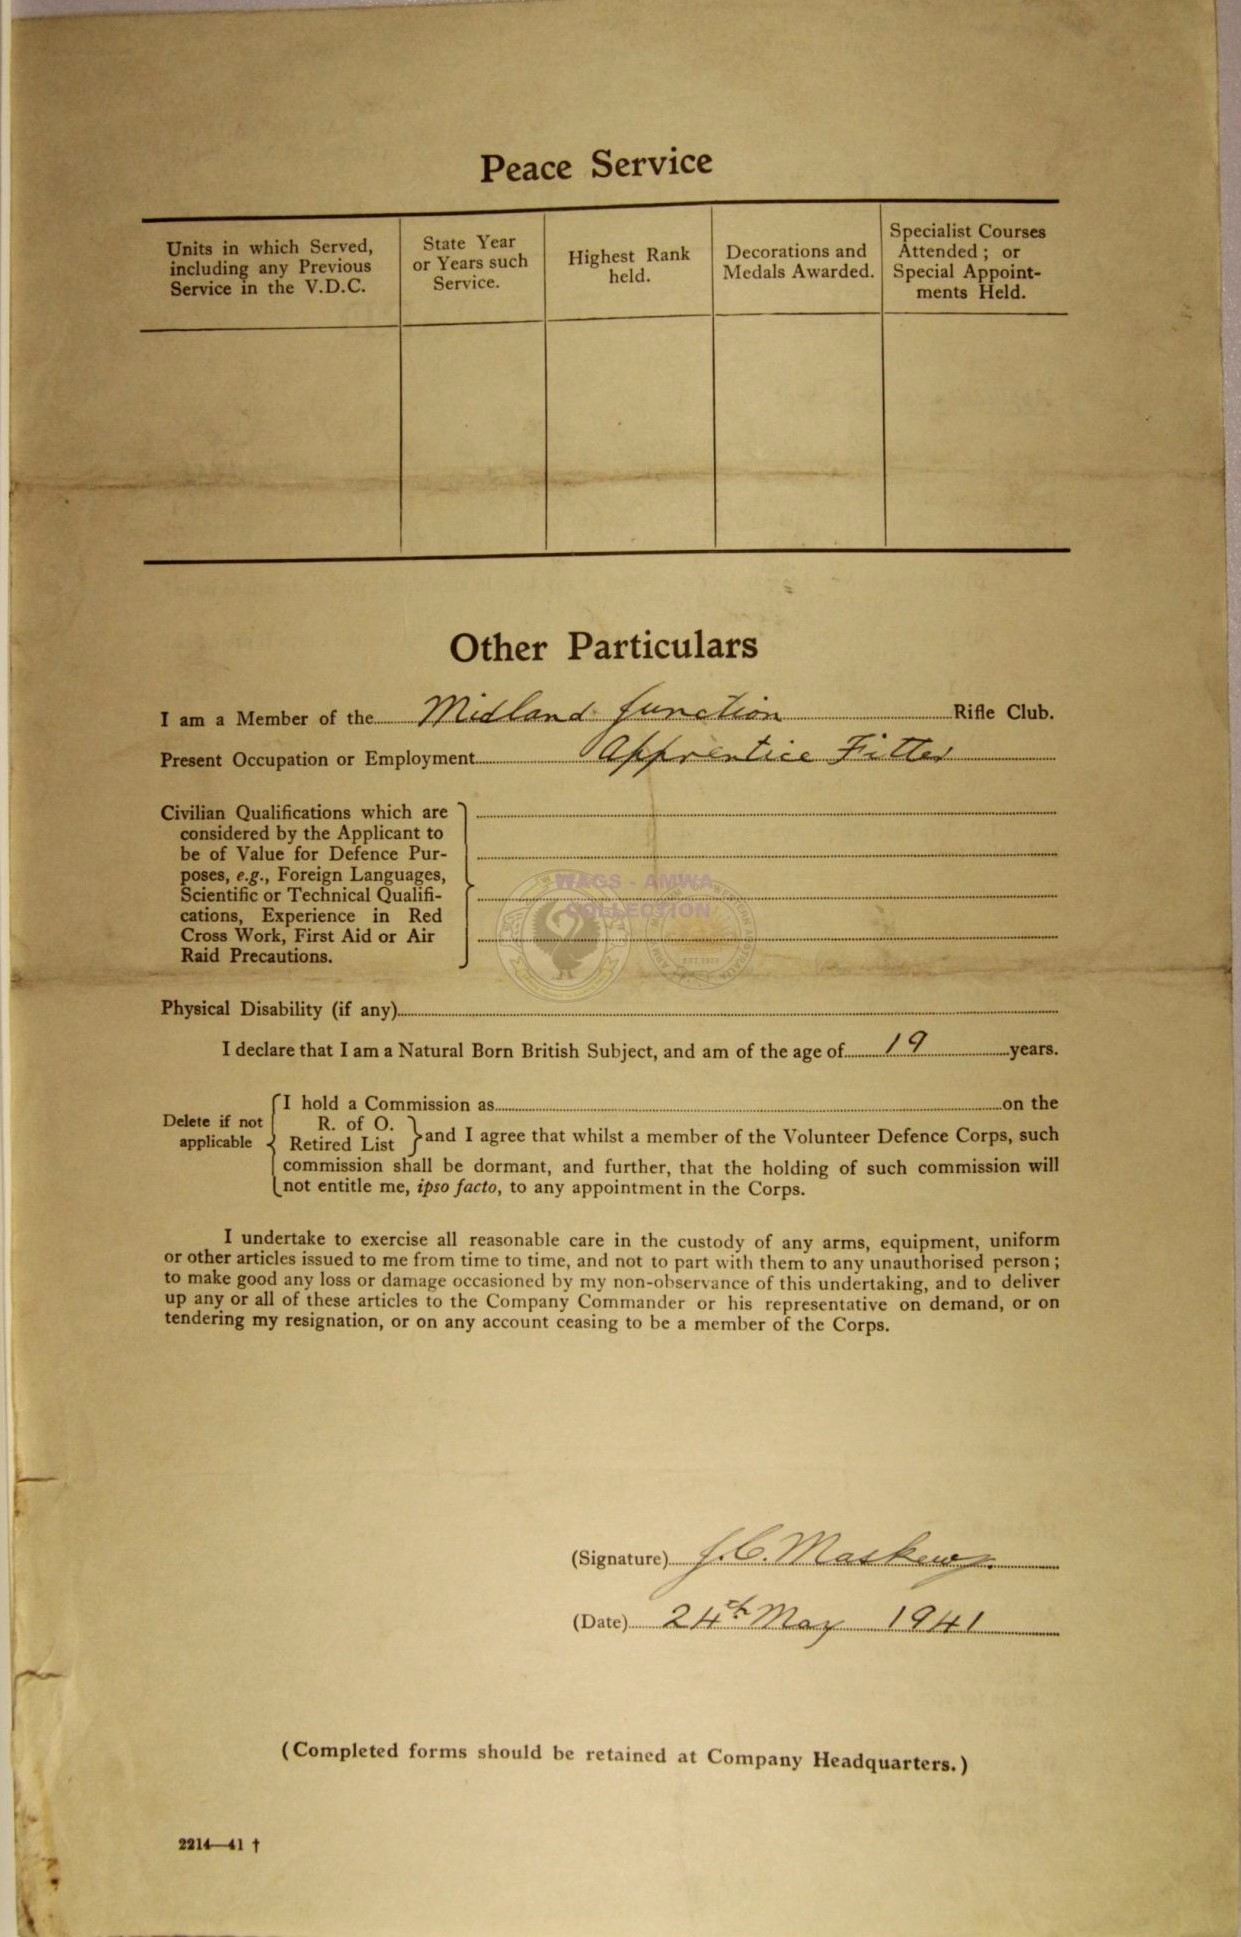 Peace Service
Units in which Served,
including any Previous
Service in the V.D.C.
State Year
or Years such
Service.
Highest Rank
held.
Decorations and
Medals Awarded.
Specialist Courses
Attended ; or
Special Appoint-
ments Held.
Other Particulars
I am a Member of the Midland Junction Rifle Club.
Present Occupation or Employment Apprentice Fitter
Civilian Qualifications which are
considered by the Applicant to
be of Value for Defence Pur-
poses, e.g., Foreign Languages,
Scientific or Technical Qualifi-
cations, Experience in Red
Cross Work, First Aid or Air
Raid Precautions.
WAGS - AMWA
COLLECTION
Physical Disability (if any)
I declare that I am a Natural Born British Subject, and am of the age of 19 years.
Delete if not
applicable
I hold a Commission as on the
R. of O.
Retired List
and I agree that whilst a member of the Volunteer Defence Corps, such
commission shall be dormant, and further, that the holding of such commission will
not entitle me, ipso facto, to any appointment in the Corps.
I undertake to exercise all reasonable care in the custody of any arms, equipment, uniform
or other articles issued to me from time to time, and not to part with them to any unauthorised person ;
to make good any loss or damage occasioned by my non-observance of this undertaking, and to deliver
up any or all of these articles to the Company Commander or his representative on demand, or on
tendering my resignation, or on any account ceasing to be a member of the Corps.
(Signature) J. C. Maskew.
(Date) 24th May 1941
(Completed forms should be retained at Company Headquarters.)
2214—41 †